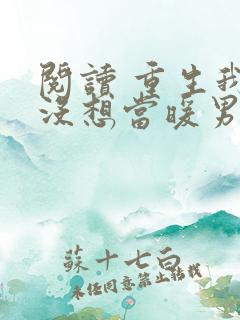 閱讀 重生我
沒想當暖男
蘇十七白
未經同意禁止轉載